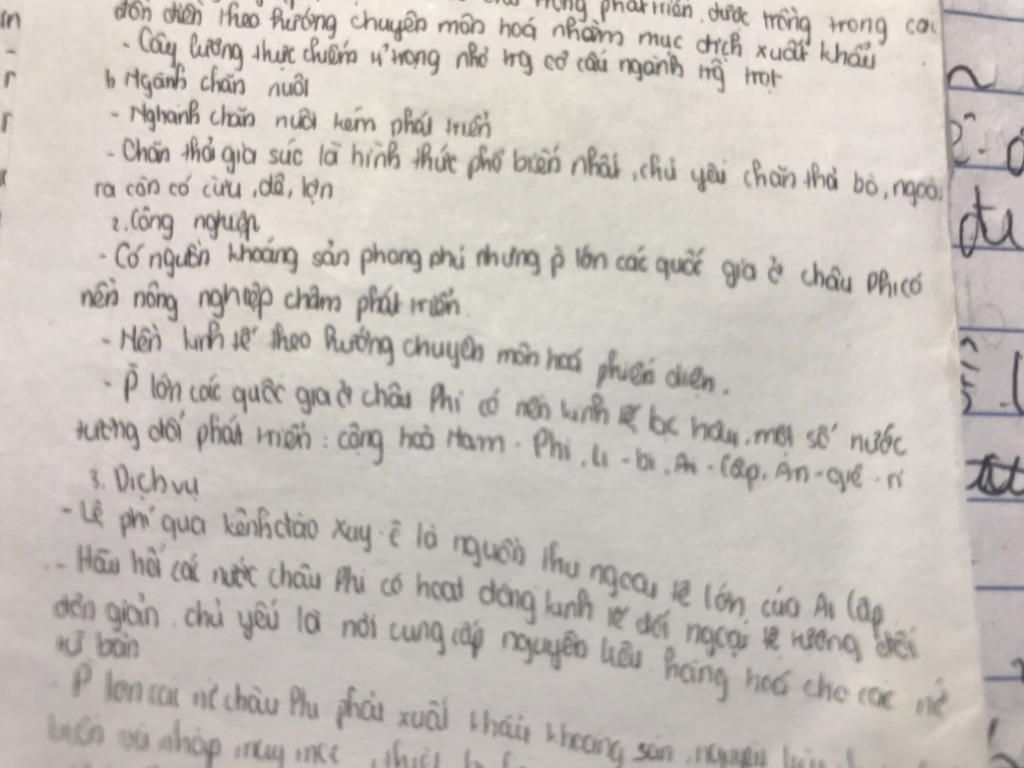 đồn điền theo hướng chuyên môn hoá nhằm mục đích xuất khẩu
- Cây lương thực chiếm tỉ trọng nhỏ trg cơ cấu ngành trồng trọt
b Ngành chăn nuôi
- Nghành chăn nuôi kém phát triển
- Chăn thả gia súc là hình thức phổ biến nhất, chủ yếu chăn thả bò, ngoài
ra còn có cừu, dê, lợn
2. Công nghiệp
- Có nguồn khoáng sản phong phú nhưng p̀ lớn các quốc gia ở châu Phi có
nền nông nghiệp chậm phát triển
- Nền kinh tế theo hướng chuyên môn hoá phiến diện.
- P̀ lớn các quốc gia ở châu Phi có nền kinh tế lạc hậu. một số nước
tương đối phát triển: cộng hoà Nam - Phi, Li - bi, Ai - Cập, An - giê - ri
3. Dịch vụ
- Lệ phí qua kênh đào Xuy-ê là nguồn thu ngoại tệ lớn của Ai Cập
- Hầu hết các nước châu Phi có hoạt động kinh tế đối ngoại tương đối
đơn giản. chủ yếu là nơi cung cấp nguyên liệu hàng hoá cho các nc
tư bản
- P lớn các nc châu Phi phải xuất khẩu khoáng sản, nguyên liệu
và nhập máy móc, thiết bị